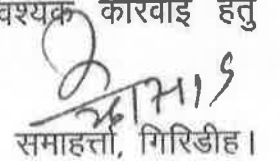 वश्यक कारवाई हेतु
समाहर्त्ता, गिरिडीह।